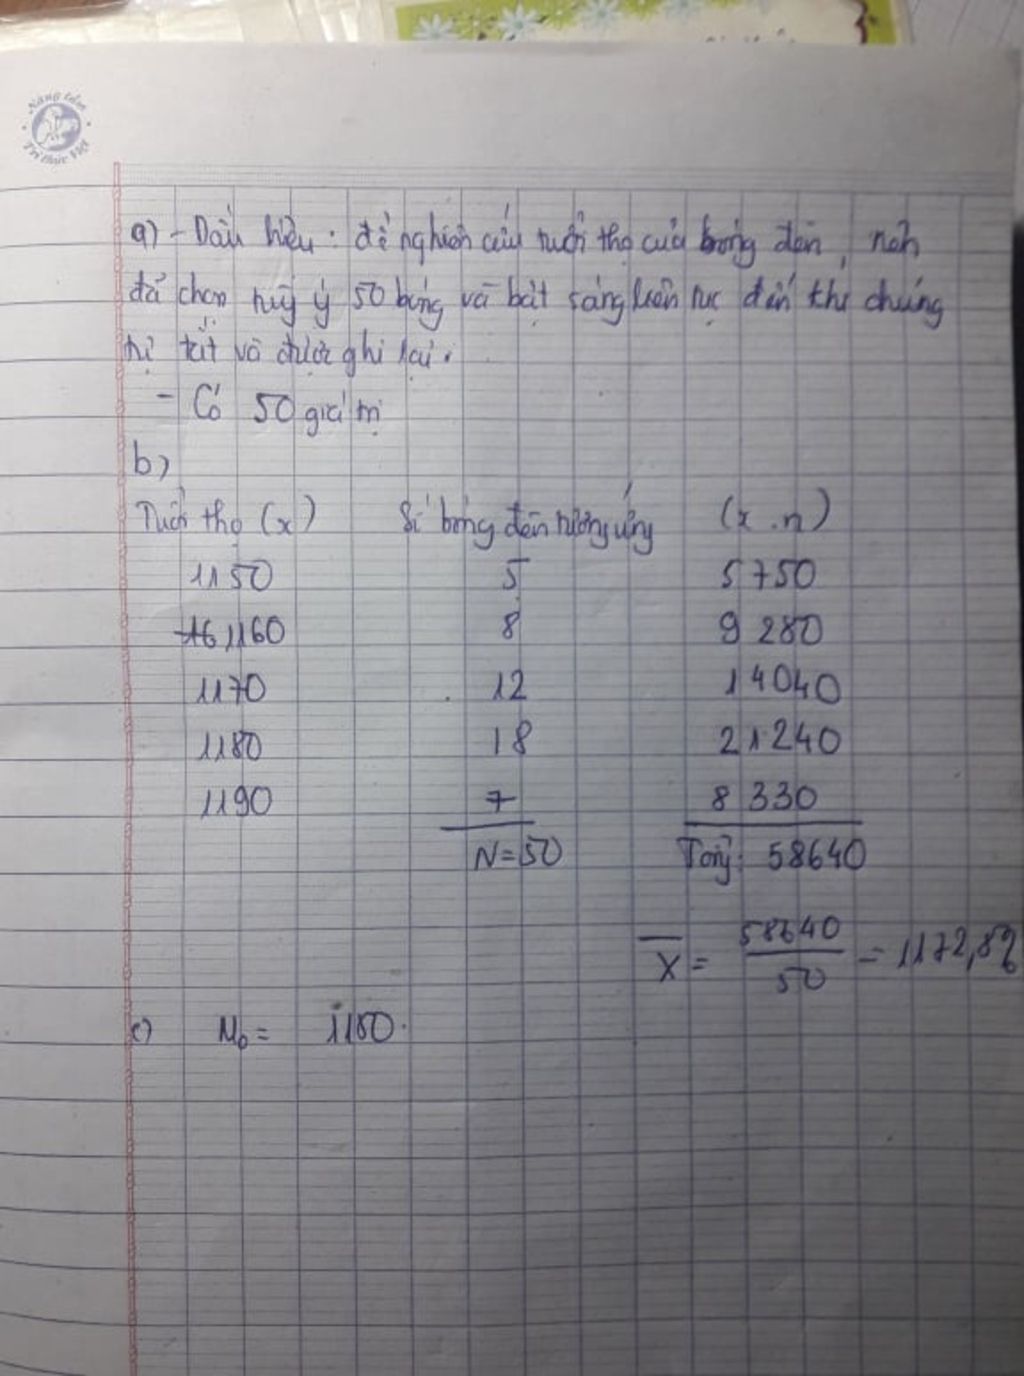 Nâng tầm
Tri thức Việt
a) - Dấu hiệu : để nghiên cứu tuổi thọ của bóng đèn, nên
đã chọn tuỳ ý 50 bóng và bật sáng liên tục đến khi chúng
tự tắt và được ghi lại.
- Có 50 giá trị
b)
Tuổi thọ (x) Số bóng đèn tương ứng (x.n)
1150 5 5750
1160 8 9280
1170 12 14040
1180 18 21240
1190 7 8330
N=50 Tổng: 58640
X = 58640/50 = 1172,8
c) M₀ = 1180.